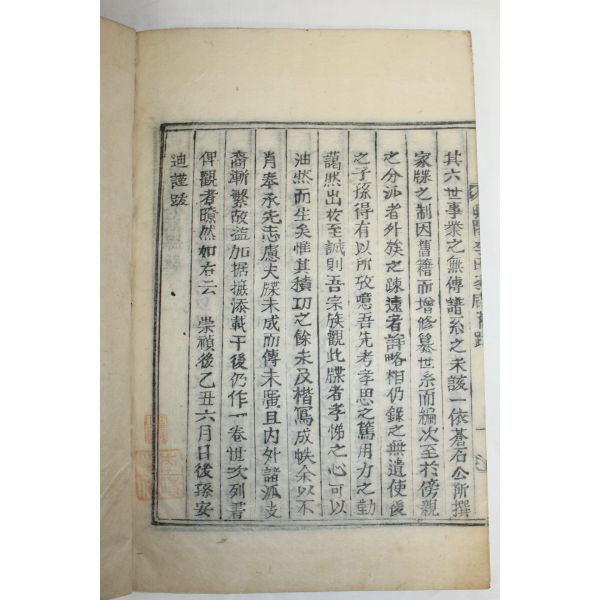 其六世事業之無傳諸系之未該一依蒼石公所撰
家牒之制因舊籍而增修纂世系而編次至於傍親
之分派者外族之疎遠者詳略相仍錄之無遺使後
之子孫得有以所攷噫吾先考孝思之篤用力之勤
藹然出於至誠則吾宗族觀此牒者孝悌之心可以
油然而生矣惟其積功之餘未及楷寫成帙余以不
肖奉承先志慮夫牒未成而傳未廣且內外諸派支
裔漸繁故益加据摭添載于後仍作一卷世次列書
俾觀者瞭然如右云 崇禎後乙丑六月日後孫安
迪謹跋